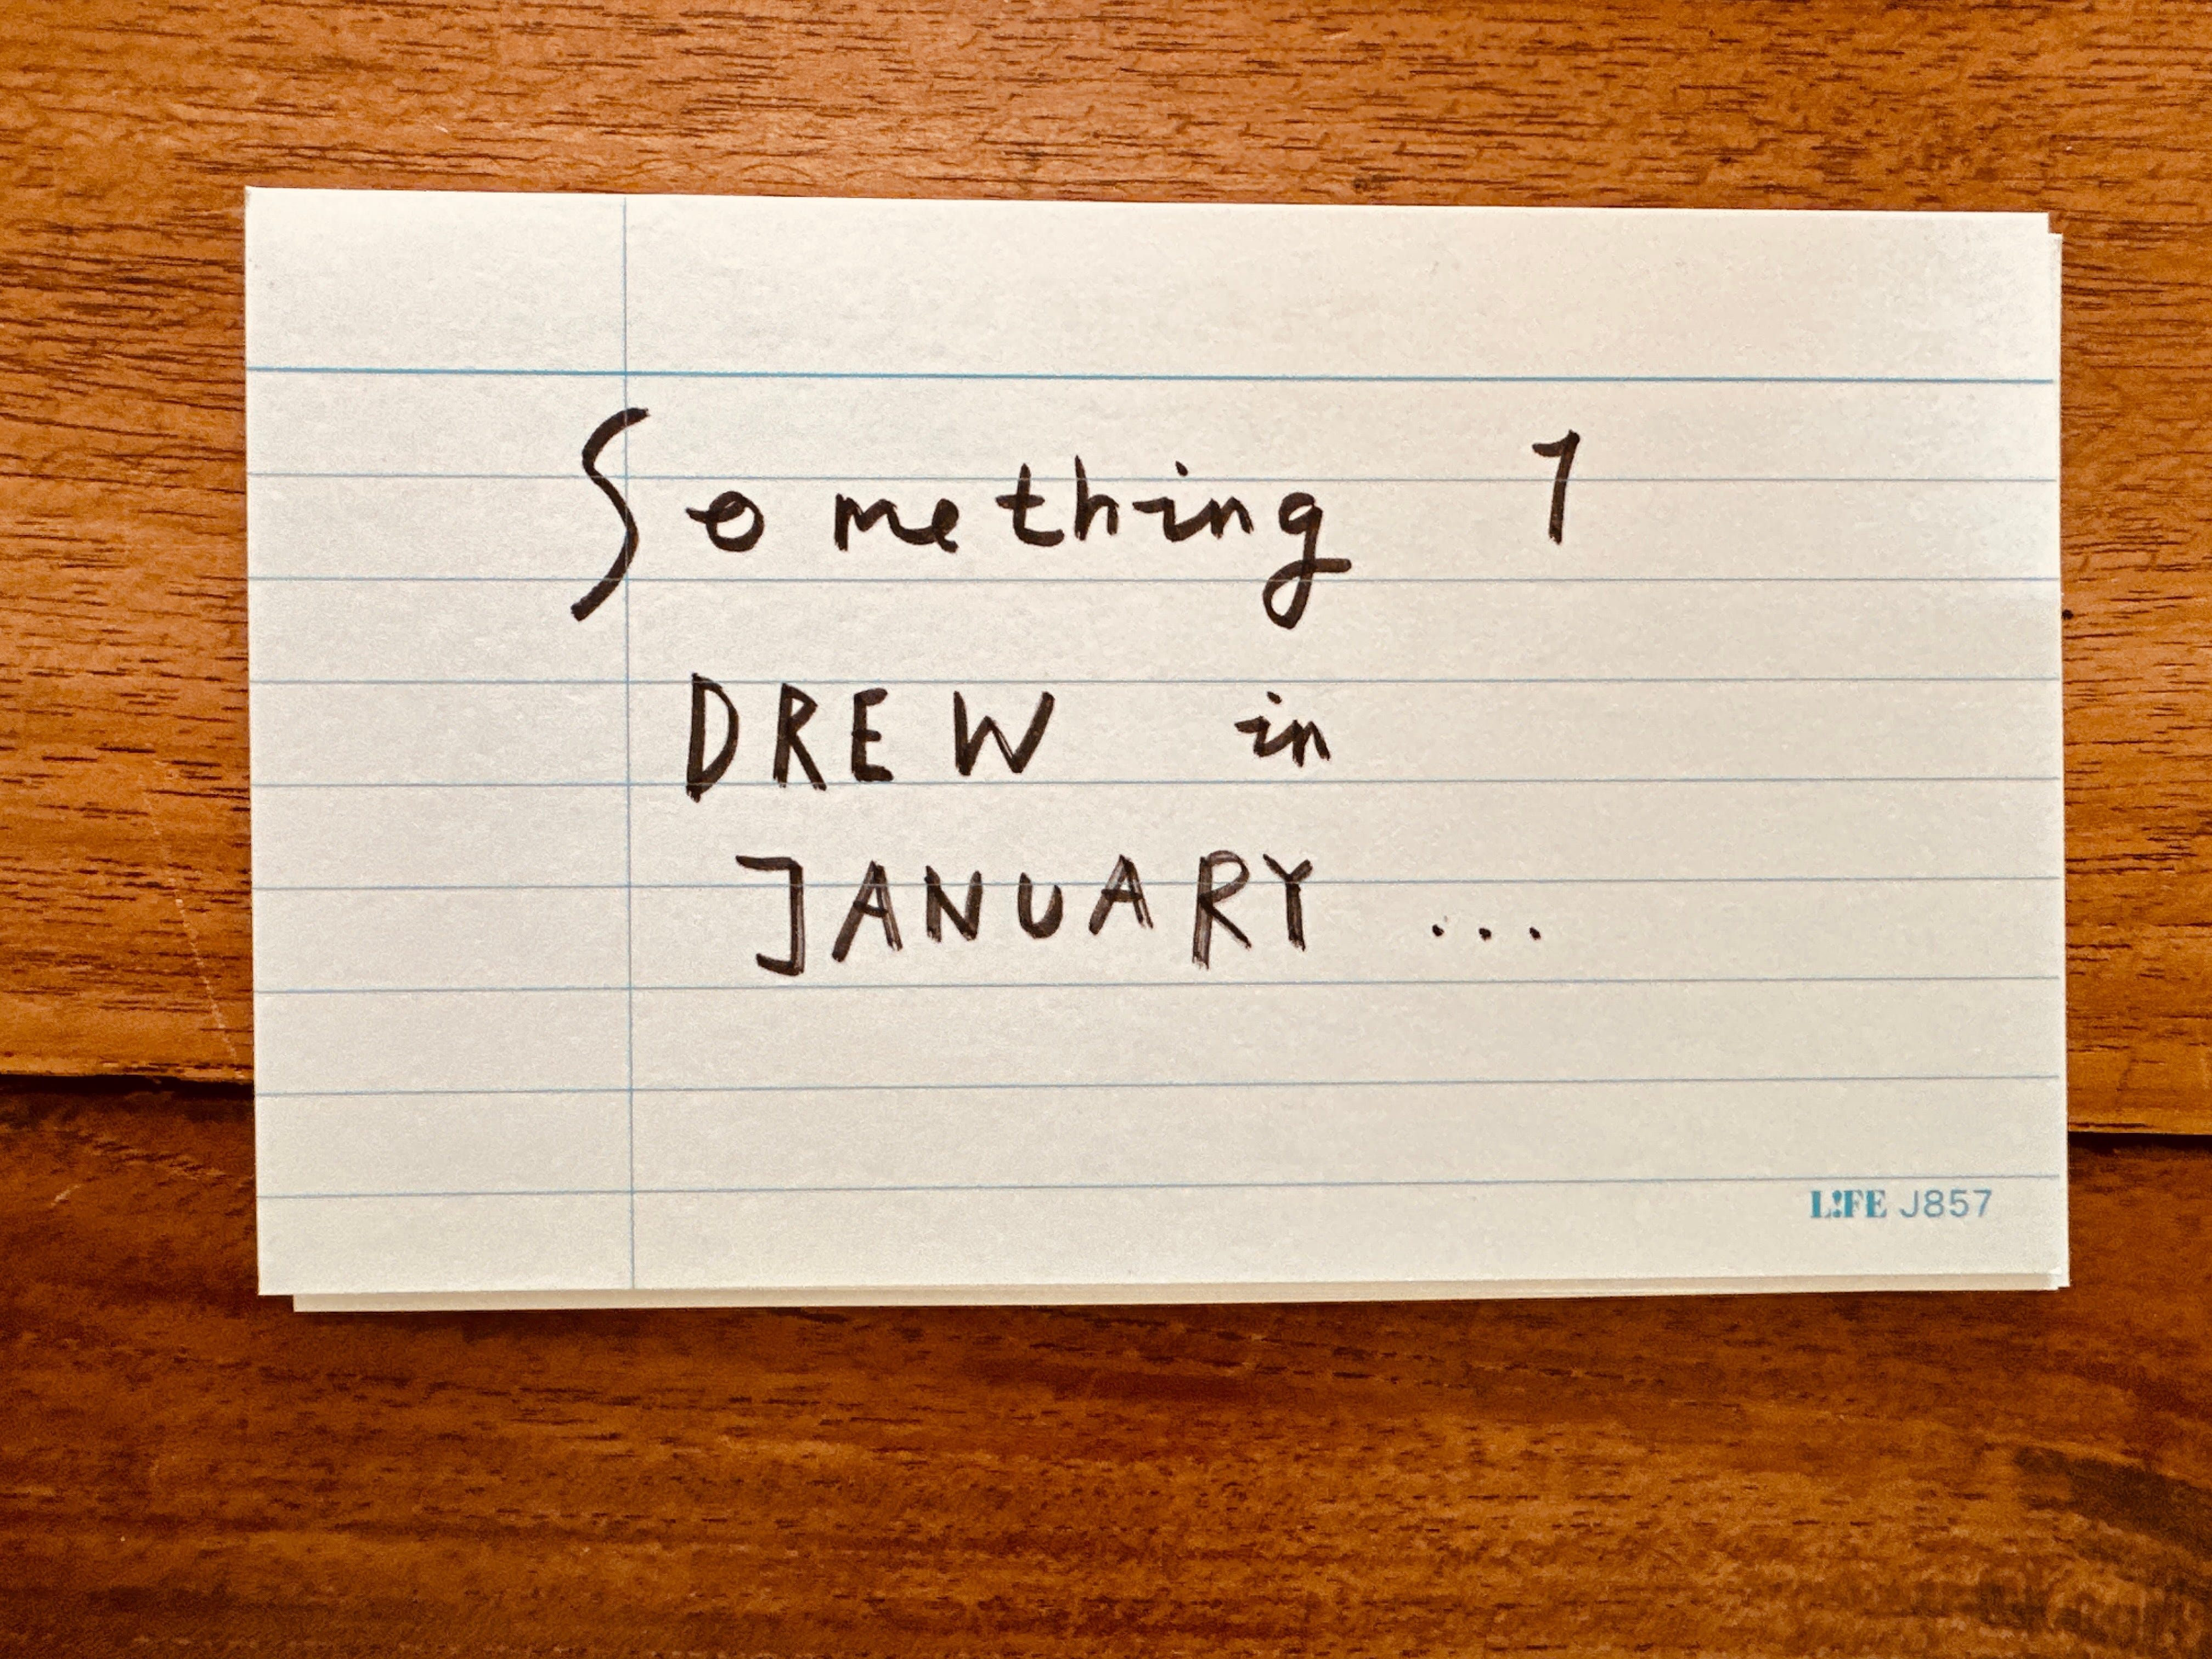 Something I
DREW in
JANUARY ...
L!FE J857